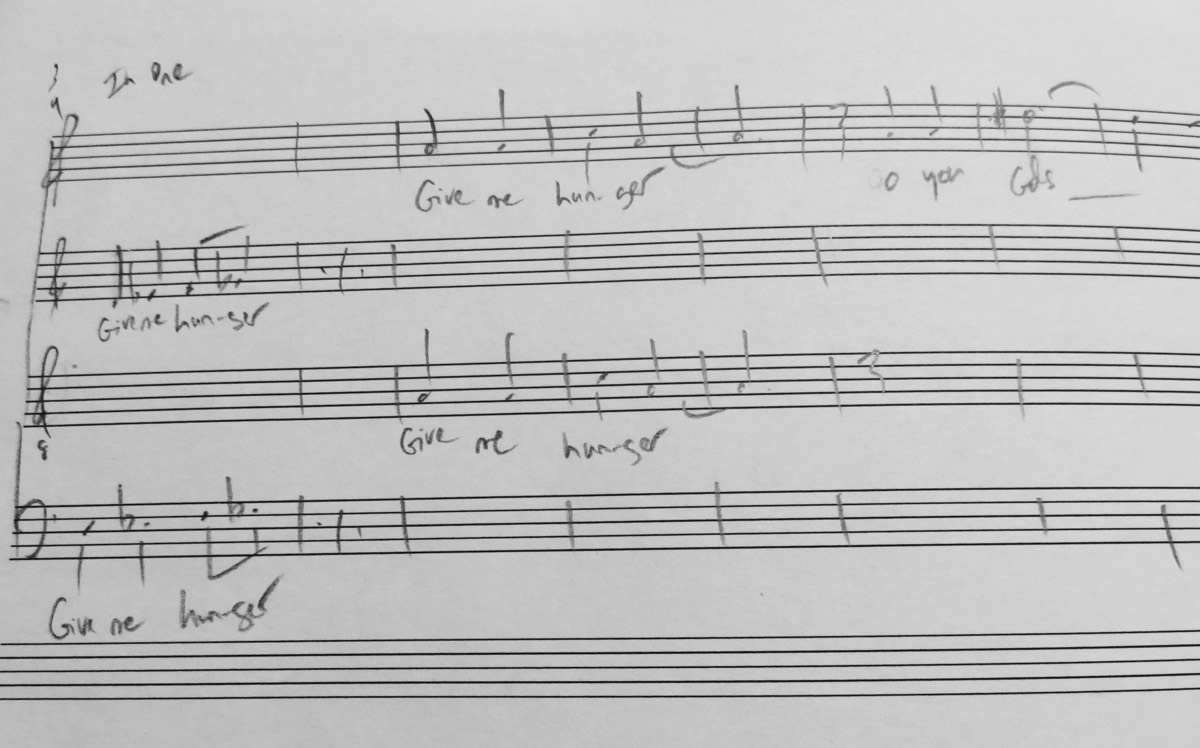 3
4
In One
Give me hun-ger O you Gods
Give me hun-ger
8
Give me hun-ger
Give me hun-ger